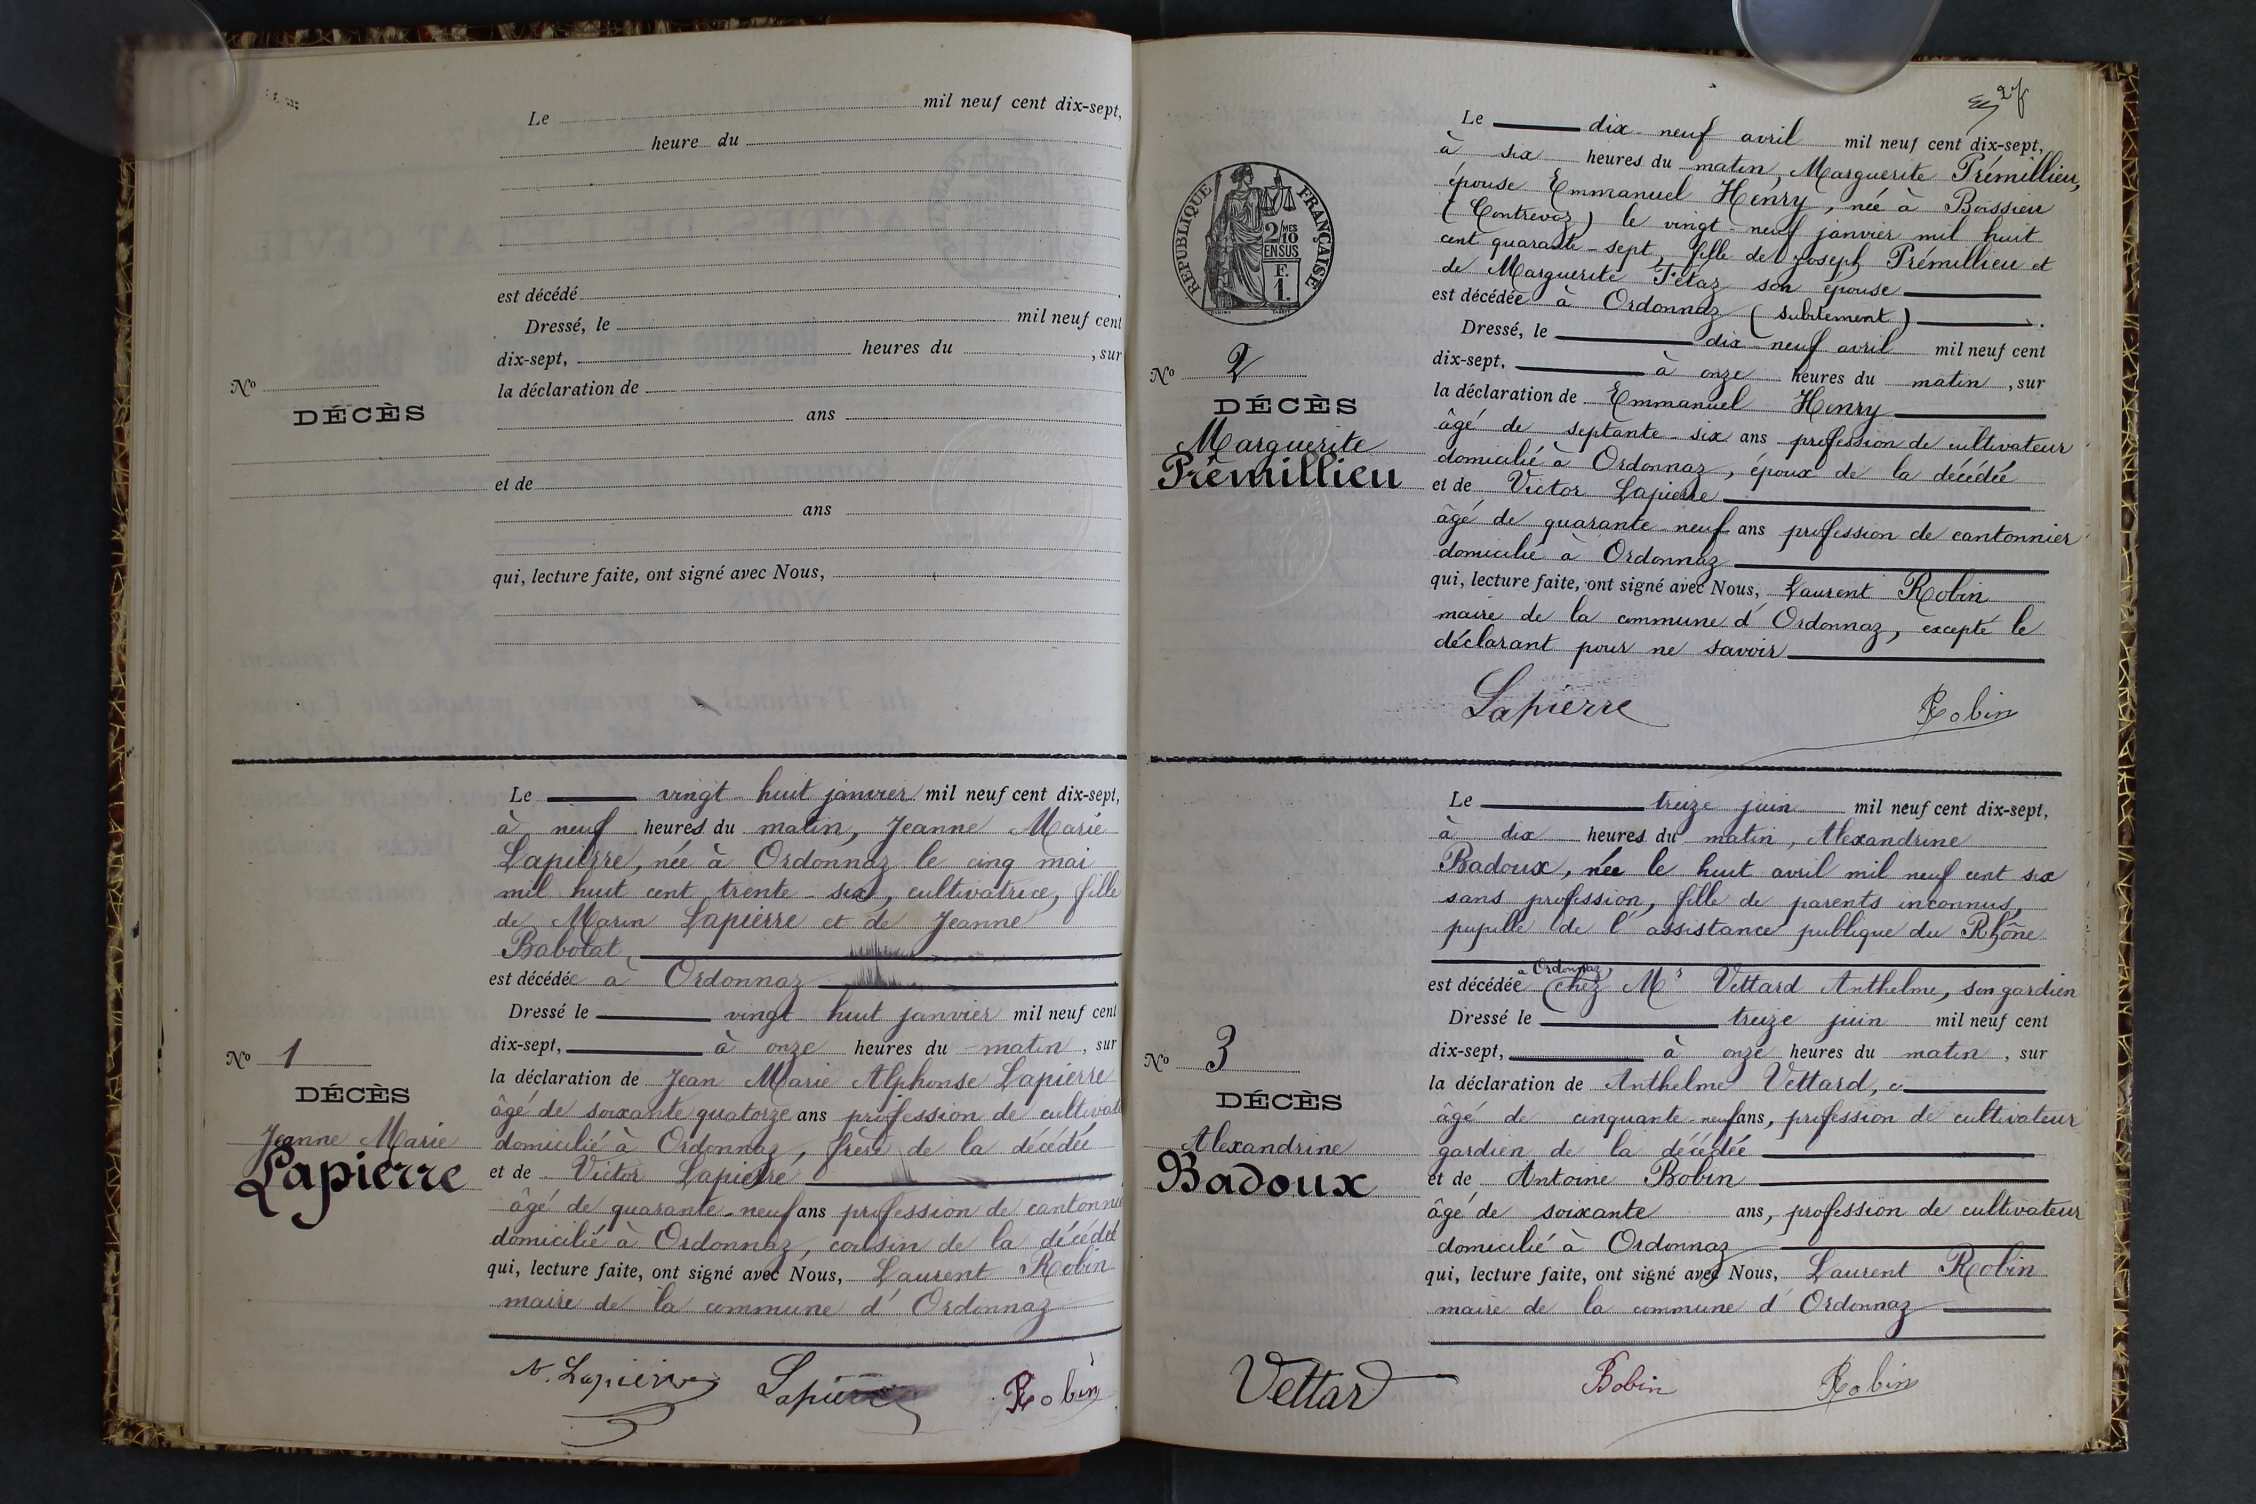 Le mil neuf cent dix-sept,
heure du
est décédé
Dressé, le mil neuf cent
dix-sept, heures du , sur
la déclaration de
ans
et de
ans
qui, lecture faite, ont signé avec Nous,
No
DÉCÈS
Le vingt-huit janvier mil neuf cent dix-sept,
à neuf heures du matin, Jeanne Marie
Lapierre, née à Ordonnaz le cinq mai
mil huit cent trente-six, cultivatrice, fille
de Marin Lapierre et de Jeanne
Babolat,
est décédée à Ordonnaz
Dressé le vingt huit janvier mil neuf cent
dix-sept, à onze heures du matin, sur
la déclaration de Jean Marie Alphonse Lapierre
âgé de soixante quatorze ans profession de cultivate
domicilié à Ordonnaz, frère de la décédée
et de Victor Lapierre
âgé de quarante-neuf ans profession de cantonnie
domicilié à Ordonnaz, cousin de la décédée
qui, lecture faite, ont signé avec Nous, Laurent Robin
maire de la commune d'Ordonnaz
No 1
DÉCÈS
Jeanne Marie
Lapierre
Lapierre Lapierre Robin
27
Le dix-neuf avril mil neuf cent dix-sept,
à six heures du matin, Marguerite Prémillieu,
épouse Emmanuel Henry, née à Boissieu
(Contrevoz) le vingt-neuf janvier mil huit
cent quarante-sept, fille de Joseph Prémillieu et
de Marguerite Fétaz son épouse
est décédée à Ordonnaz (subitement)
Dressé, le dix-neuf avril mil neuf cent
dix-sept, à onze heures du matin, sur
la déclaration de Emmanuel Henry
âgé de septante-six ans profession de cultivateur
domicilié à Ordonnaz, époux de la décédée
et de Victor Lapierre
âgé de quarante-neuf ans profession de cantonnier
domicilié à Ordonnaz
qui, lecture faite, ont signé avec Nous, Laurent Robin
maire de la commune d'Ordonnaz, excepté le
déclarant pour ne savoir
RÉPUBLIQUE FRANÇAISE
2/10 MES
EN SUS
F.
1.
No 2
DÉCÈS
Marguerite
Prémillieu
Lapierre Robin
Le treize juin mil neuf cent dix-sept,
à dix heures du matin, Alexandrine
Badoux, née le huit avril mil neuf cent six
sans profession, fille de parents inconnus,
pupille de l'assistance publique du Rhône
à Ordonnaz,
est décédée chez Mr Vettard Anthelme, son gardien
Dressé le treize juin mil neuf cent
dix-sept, à onze heures du matin, sur
la déclaration de Anthelme Vettard,
âgé de cinquante-neuf ans, profession de cultivateur
gardien de la décédée
et de Antoine Bobin
âgé de soixante ans, profession de cultivateur
domicilié à Ordonnaz
qui, lecture faite, ont signé avec Nous, Laurent Robin
maire de la commune d'Ordonnaz
No 3
DÉCÈS
Alexandrine
Badoux
Vettard Bobin Robin